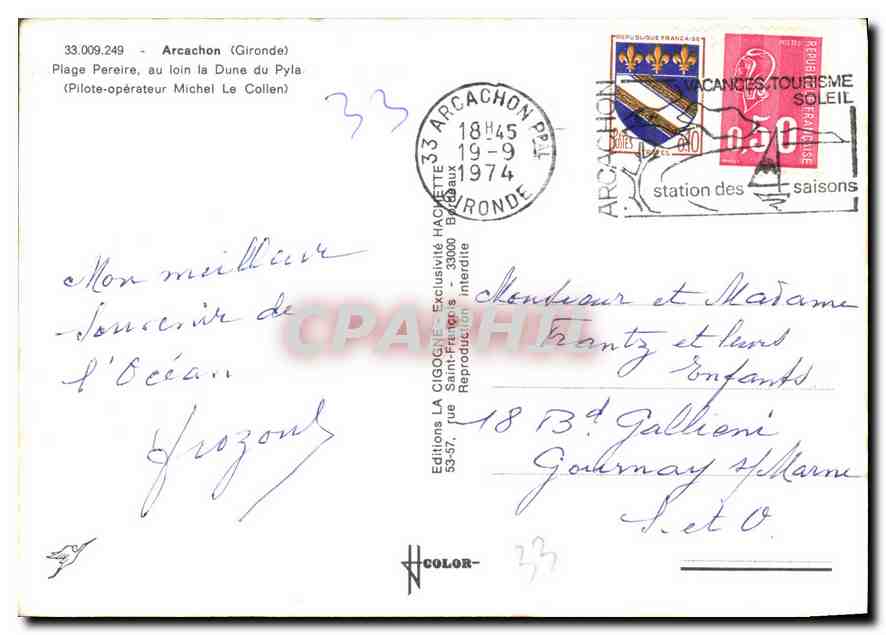 33.009.249 - Arcachon (Gironde)
Plage Pereire, au loin la Dune du Pyla
(Pilote-opérateur Michel Le Collen)
33
33 ARCACHON PPAL
18H45
19-9
1974
GIRONDE
REPUBLIQUE FRANÇAISE
POSTES
0,10
TROYES
REPUBLIQUE FRANÇAISE
0,50
ARCACHON
VACANCES.TOURISME
SOLEIL
station des saisons
Mon meilleur
souvenir de
l'Océan
Editions LA CIGOGNE - Exclusivité HACHETTE
53-57, rue Saint-François - 33000 Bordeaux
Reproduction interdite
CPARAMA.COM
Monsieur et Madame
Frantz et leurs
Enfants
18 Bd Gallieni
Gournay s/Marne
S. et O.
COLOR-
33